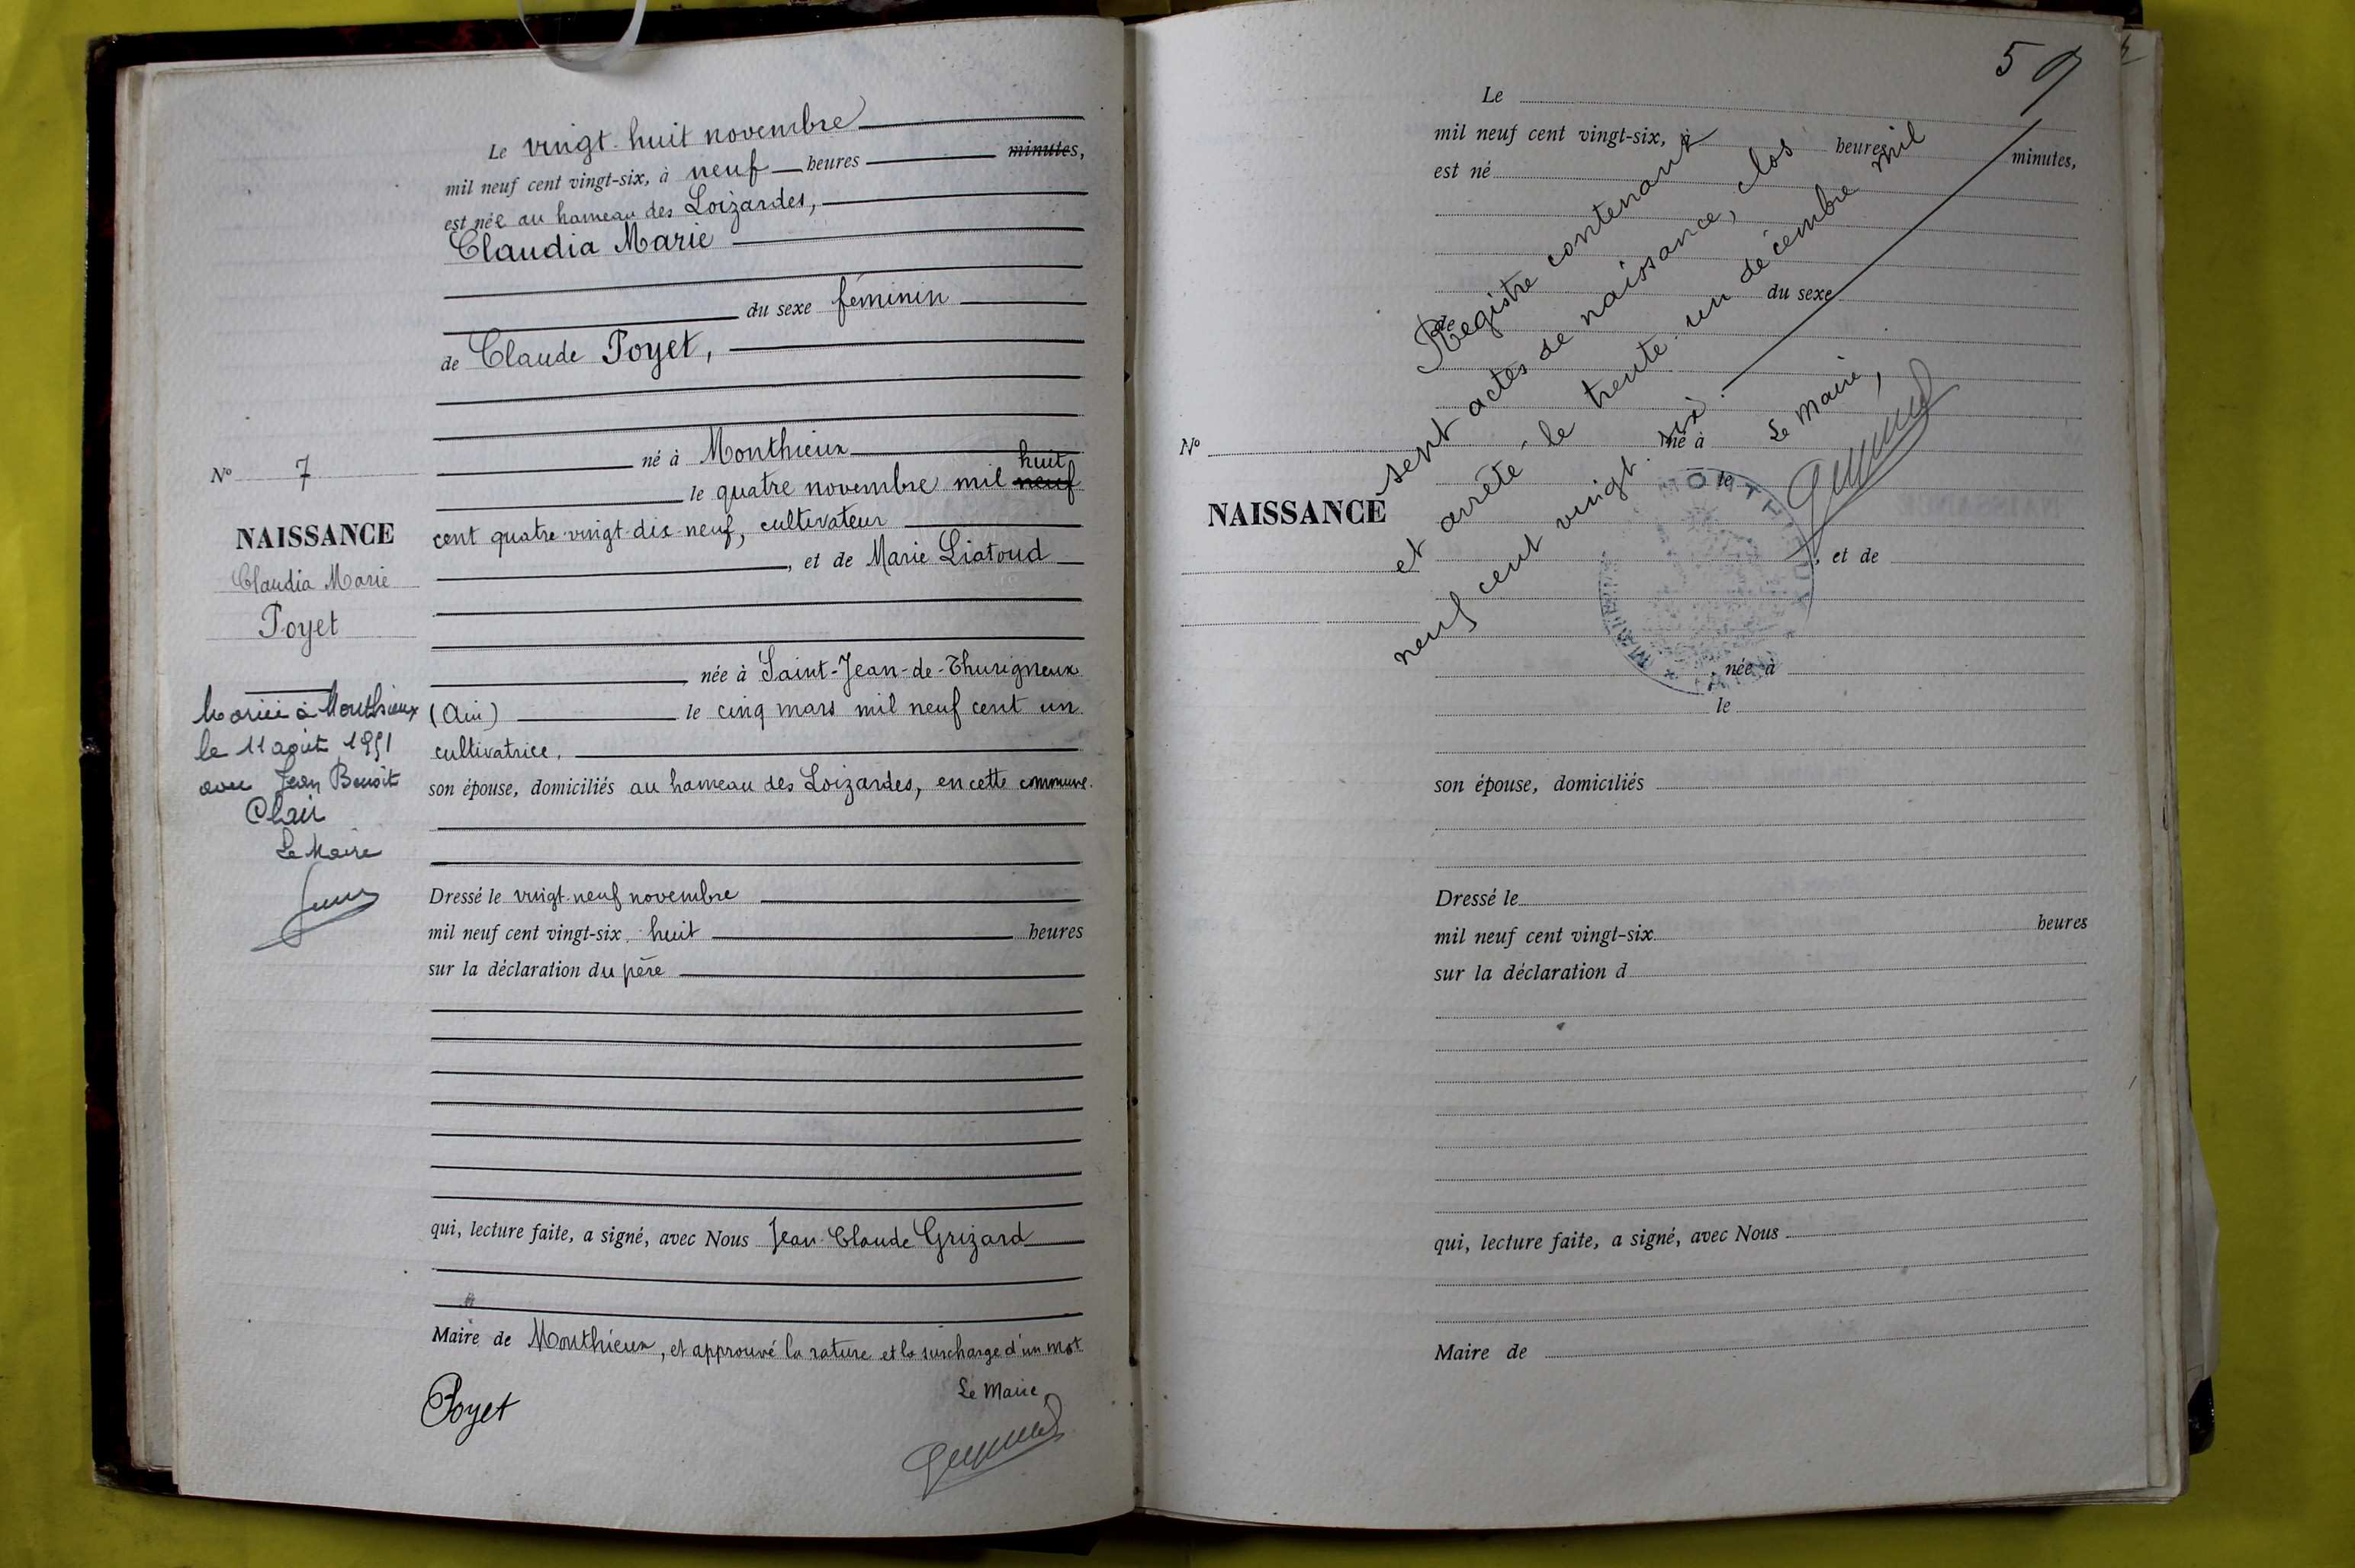 Le vingt-huit novembre
mil neuf cent vingt-six, à neuf heures minutes,
est née au hameau des Loizardes,
Claudia Marie
du sexe féminin
de Claude Poyet,
né à Monthieux
huit
le quatre novembre mil neuf
cent quatre-vingt-dix-neuf, cultivateur
, et de Marie Liatoud
née à Saint-Jean-de-Thurigneux
(Ain) le cinq mars mil neuf cent un
cultivatrice,
son épouse, domiciliés au hameau des Loizardes, en cette commune.
Dressé le vingt-neuf novembre
mil neuf cent vingt-six, huit heures
sur la déclaration du père
qui, lecture faite, a signé, avec Nous Jean-Claude Grizard
Maire de Monthieux, et approuvé la rature et la surcharge d'un mot
Le Maire
Poyet
N° 7
NAISSANCE
Claudia Marie
Poyet
Mariée à Monthieux
le 11 août 1951
avec Jean Benoît
Clair
Le Maire
Le
mil neuf cent vingt-six, à heures minutes,
est né
du sexe
de
né à
le
, et de
née à
le
son épouse, domiciliés
Dressé le
mil neuf cent vingt-six heures
sur la déclaration d
qui, lecture faite, a signé, avec Nous
Maire de
N°
NAISSANCE
Registre contenant
sept actes de naissance, clos
et arrêté le trente-un décembre mil
neuf cent vingt-six.
Le Maire,
MAIRIE